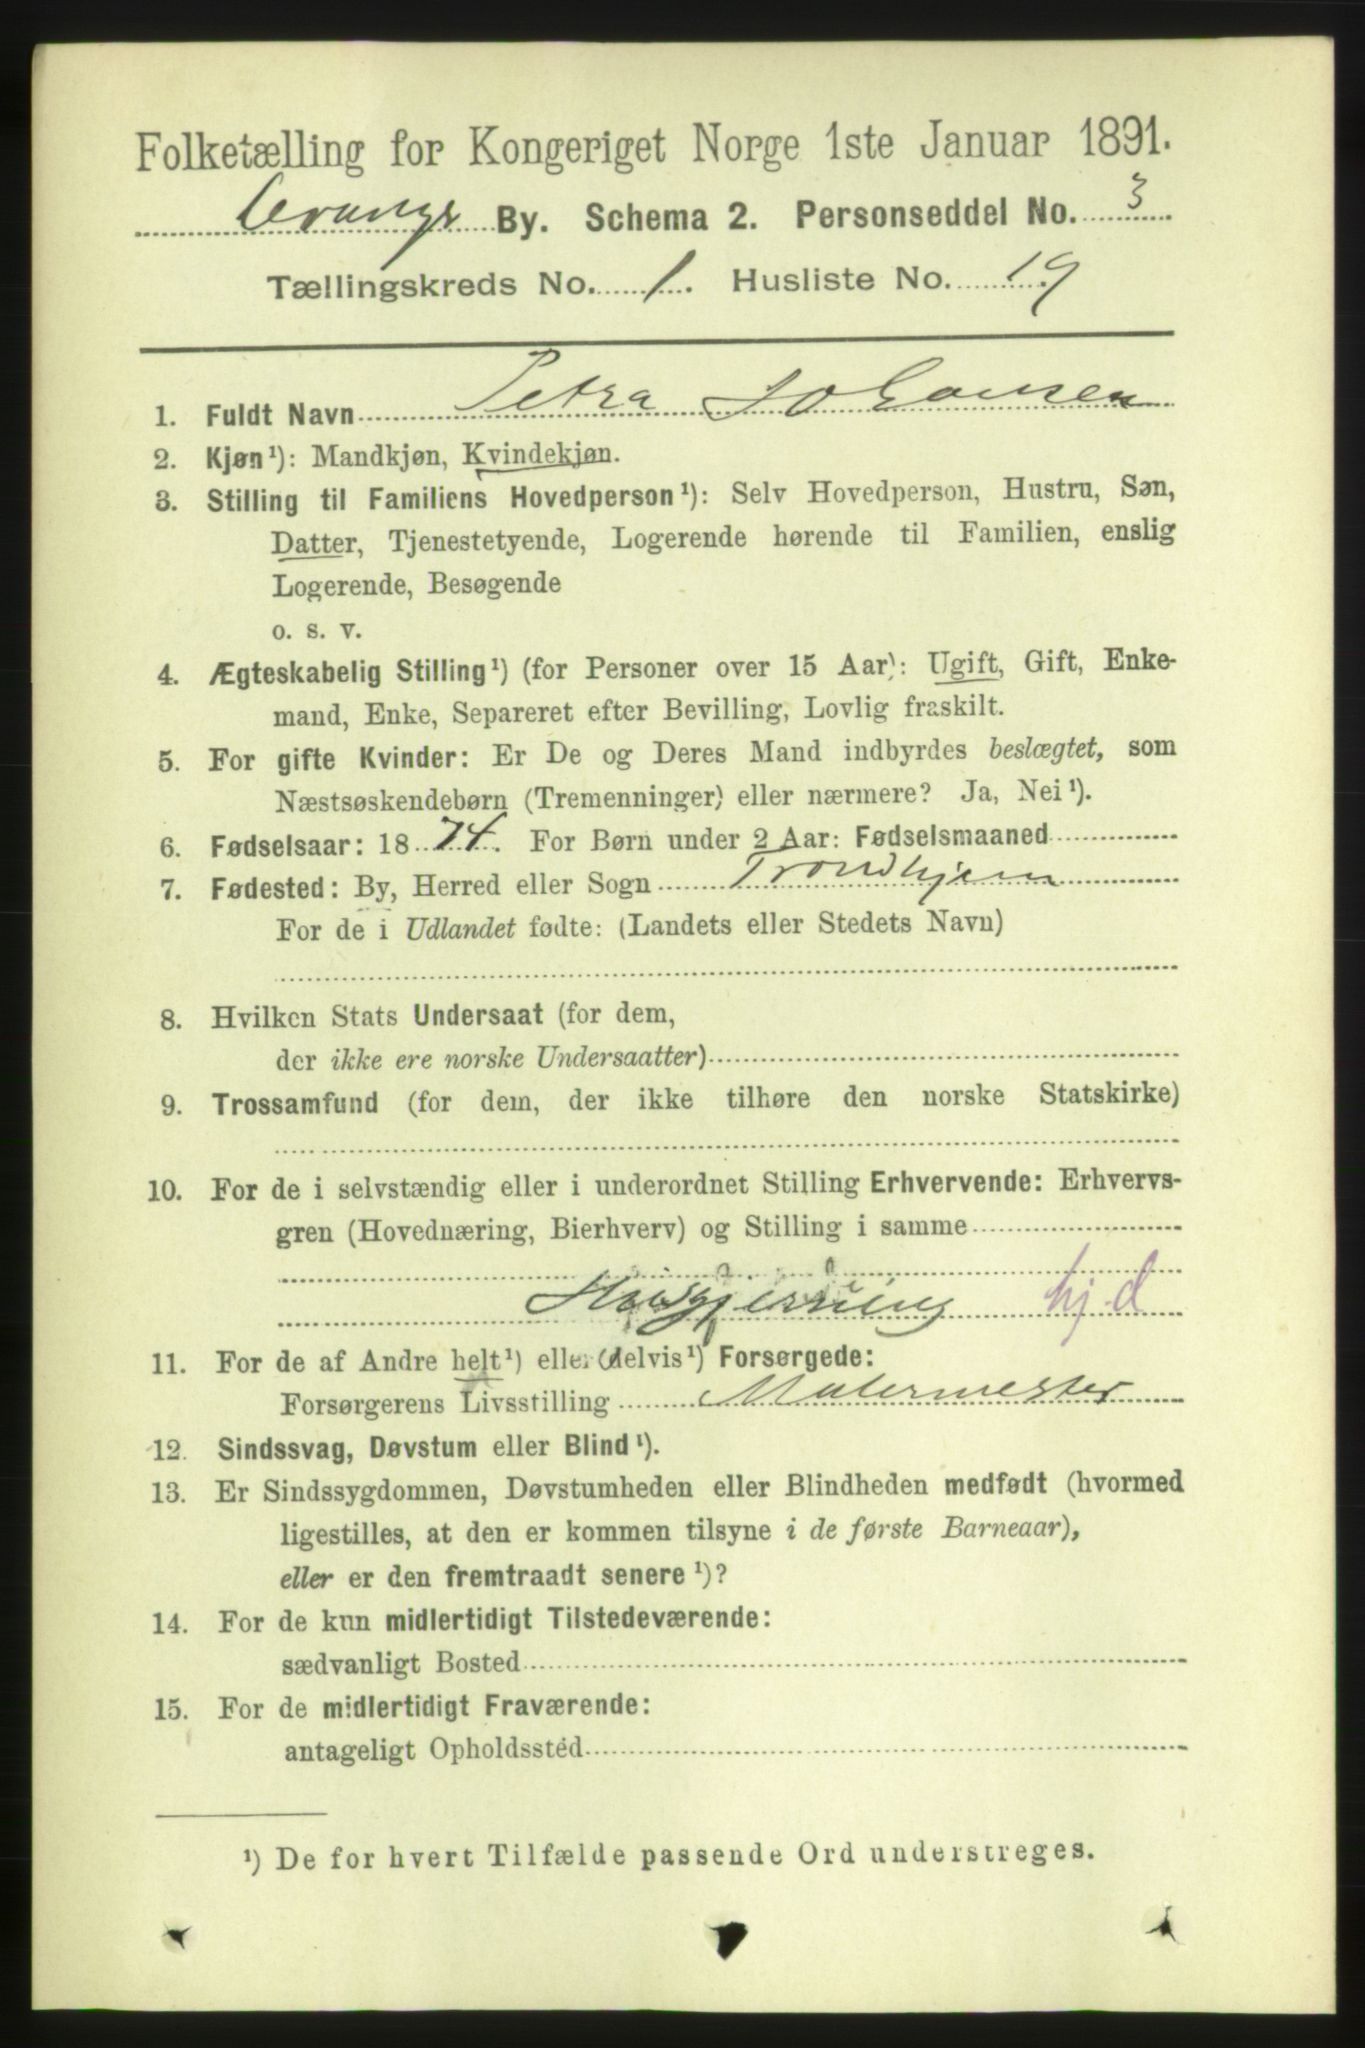 Folketælling for Kongeriget Norge 1ste Januar 1891.
By. Schema 2. Personseddel No. 3
Tællingskreds No. 1. Husliste No. 19
1. Fuldt Navn Petra Johansen
2. Kjøn¹): Mandkjøn, Kvindekjøn.
3. Stilling til Familiens Hovedperson¹): Selv Hovedperson, Hustru, Søn,
Datter, Tjenestetyende, Logerende hørende til Familien, enslig
Logerende, Besøgende
o. s. v.
4. Ægteskabelig Stilling¹) (for Personer over 15 Aar): Ugift, Gift, Enke-
mand, Enke, Separeret efter Bevilling, Lovlig fraskilt.
5. For gifte Kvinder: Er De og Deres Mand indbyrdes beslægtet, som
Næstsøskendebørn (Tremenninger) eller nærmere? Ja, Nei¹).
6. Fødselsaar: 1874. For Børn under 2 Aar: Fødselsmaaned
7. Fødested: By, Herred eller Sogn Trondhjem
For de i Udlandet fødte: (Landets eller Stedets Navn)
8. Hvilken Stats Undersaat (for dem,
der ikke ere norske Undersaatter)
9. Trossamfund (for dem, der ikke tilhøre den norske Statskirke)
10. For de i selvstændig eller i underordnet Stilling Erhvervende: Erhvervs-
gren (Hovednæring, Bierhverv) og Stilling i samme
Husgjerning hj.d
11. For de af Andre helt¹) eller (delvis¹) Forsørgede:
Forsørgerens Livsstilling Malermester
12. Sindssvag, Døvstum eller Blind¹).
13. Er Sindssygdommen, Døvstumheden eller Blindheden medfødt (hvormed
ligestilles, at den er kommen tilsyne i de første Barneaar),
eller er den fremtraadt senere¹)?
14. For de kun midlertidigt Tilstedeværende:
sædvanligt Bosted
15. For de midlertidigt Fraværende:
antageligt Opholdssted
¹) De for hvert Tilfælde passende Ord understreges.